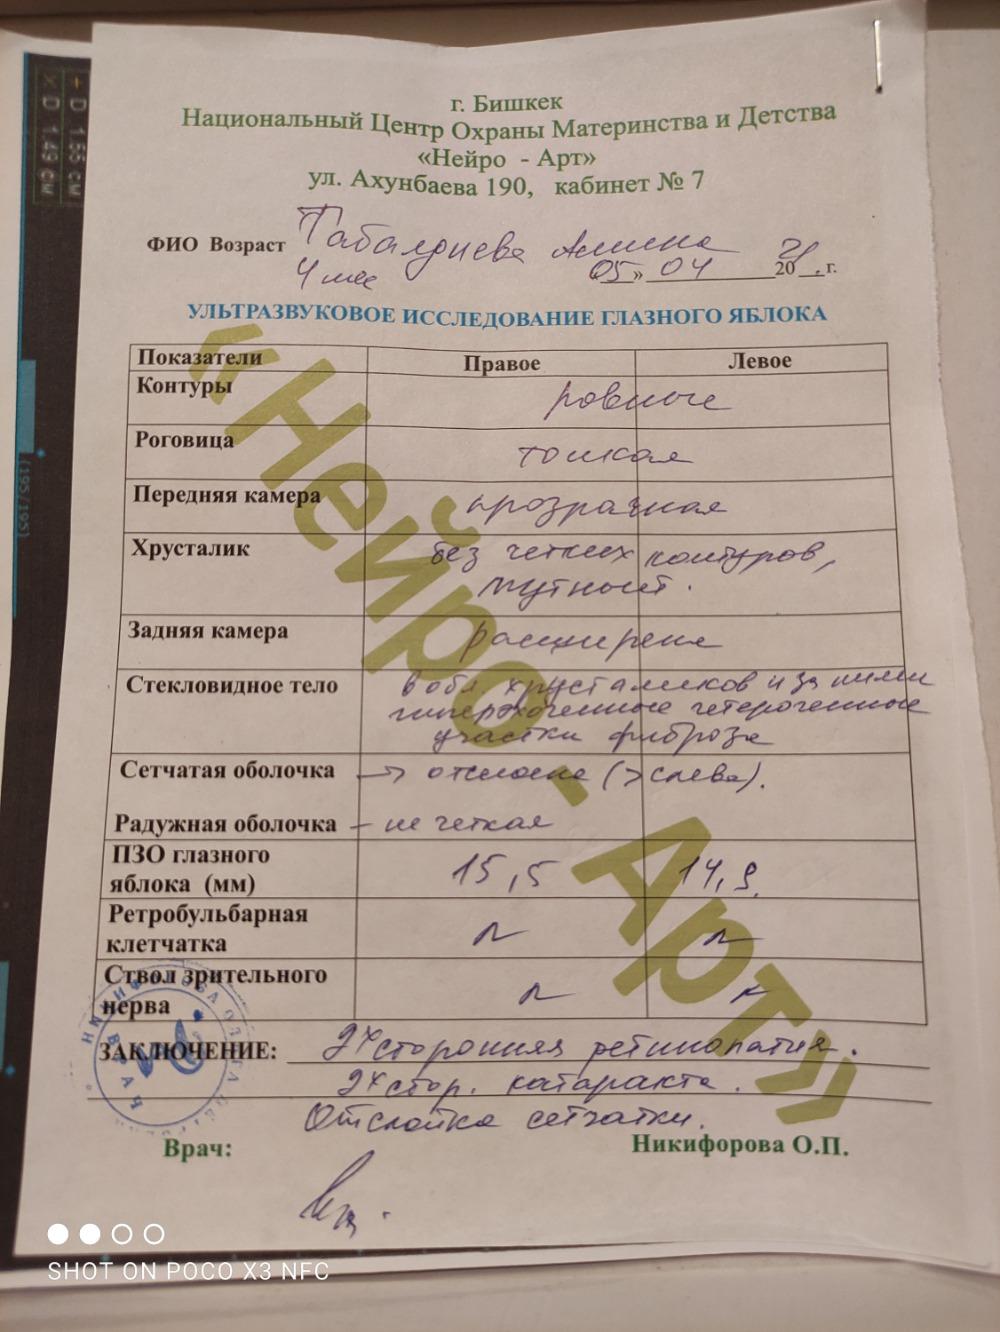 + D 1.55 см
× D 1.49 см
(195/195)
г. Бишкек
Национальный Центр Охраны Материнства и Детства
«Нейро - Арт»
ул. Ахунбаева 190, кабинет № 7
ФИО Возраст Табалдиева Амина
4 мес 05 » 04 20 21 . г.
УЛЬТРАЗВУКОВОЕ ИССЛЕДОВАНИЕ ГЛАЗНОГО ЯБЛОКА
«Нейро - Арт»
Показатели Правое Левое
Контуры ровные
Роговица тонкая
Передняя камера прозрачная
Хрусталик без четких контуров,
мутноват.
Задняя камера расширена
Стекловидное тело в обл. хрусталиков и за ними
гиперэхогенные гетерогенные
участки фиброза
Сетчатая оболочка → отслоена (> слева).
Радужная оболочка – не четкая
ПЗО глазного
яблока (мм) 15,5 14,9.
Ретробульбарная
клетчатка N N
Ствол зрительного
нерва N N
ЗАКЛЮЧЕНИЕ: 2х сторонняя ретинопатия.
2х стор. катаракта.
Отслойка сетчатки.
Врач: Никифорова О.П.
НИКИФОРОВА ОЛЬГА
ВРАЧ
SHOT ON POCO X3 NFC